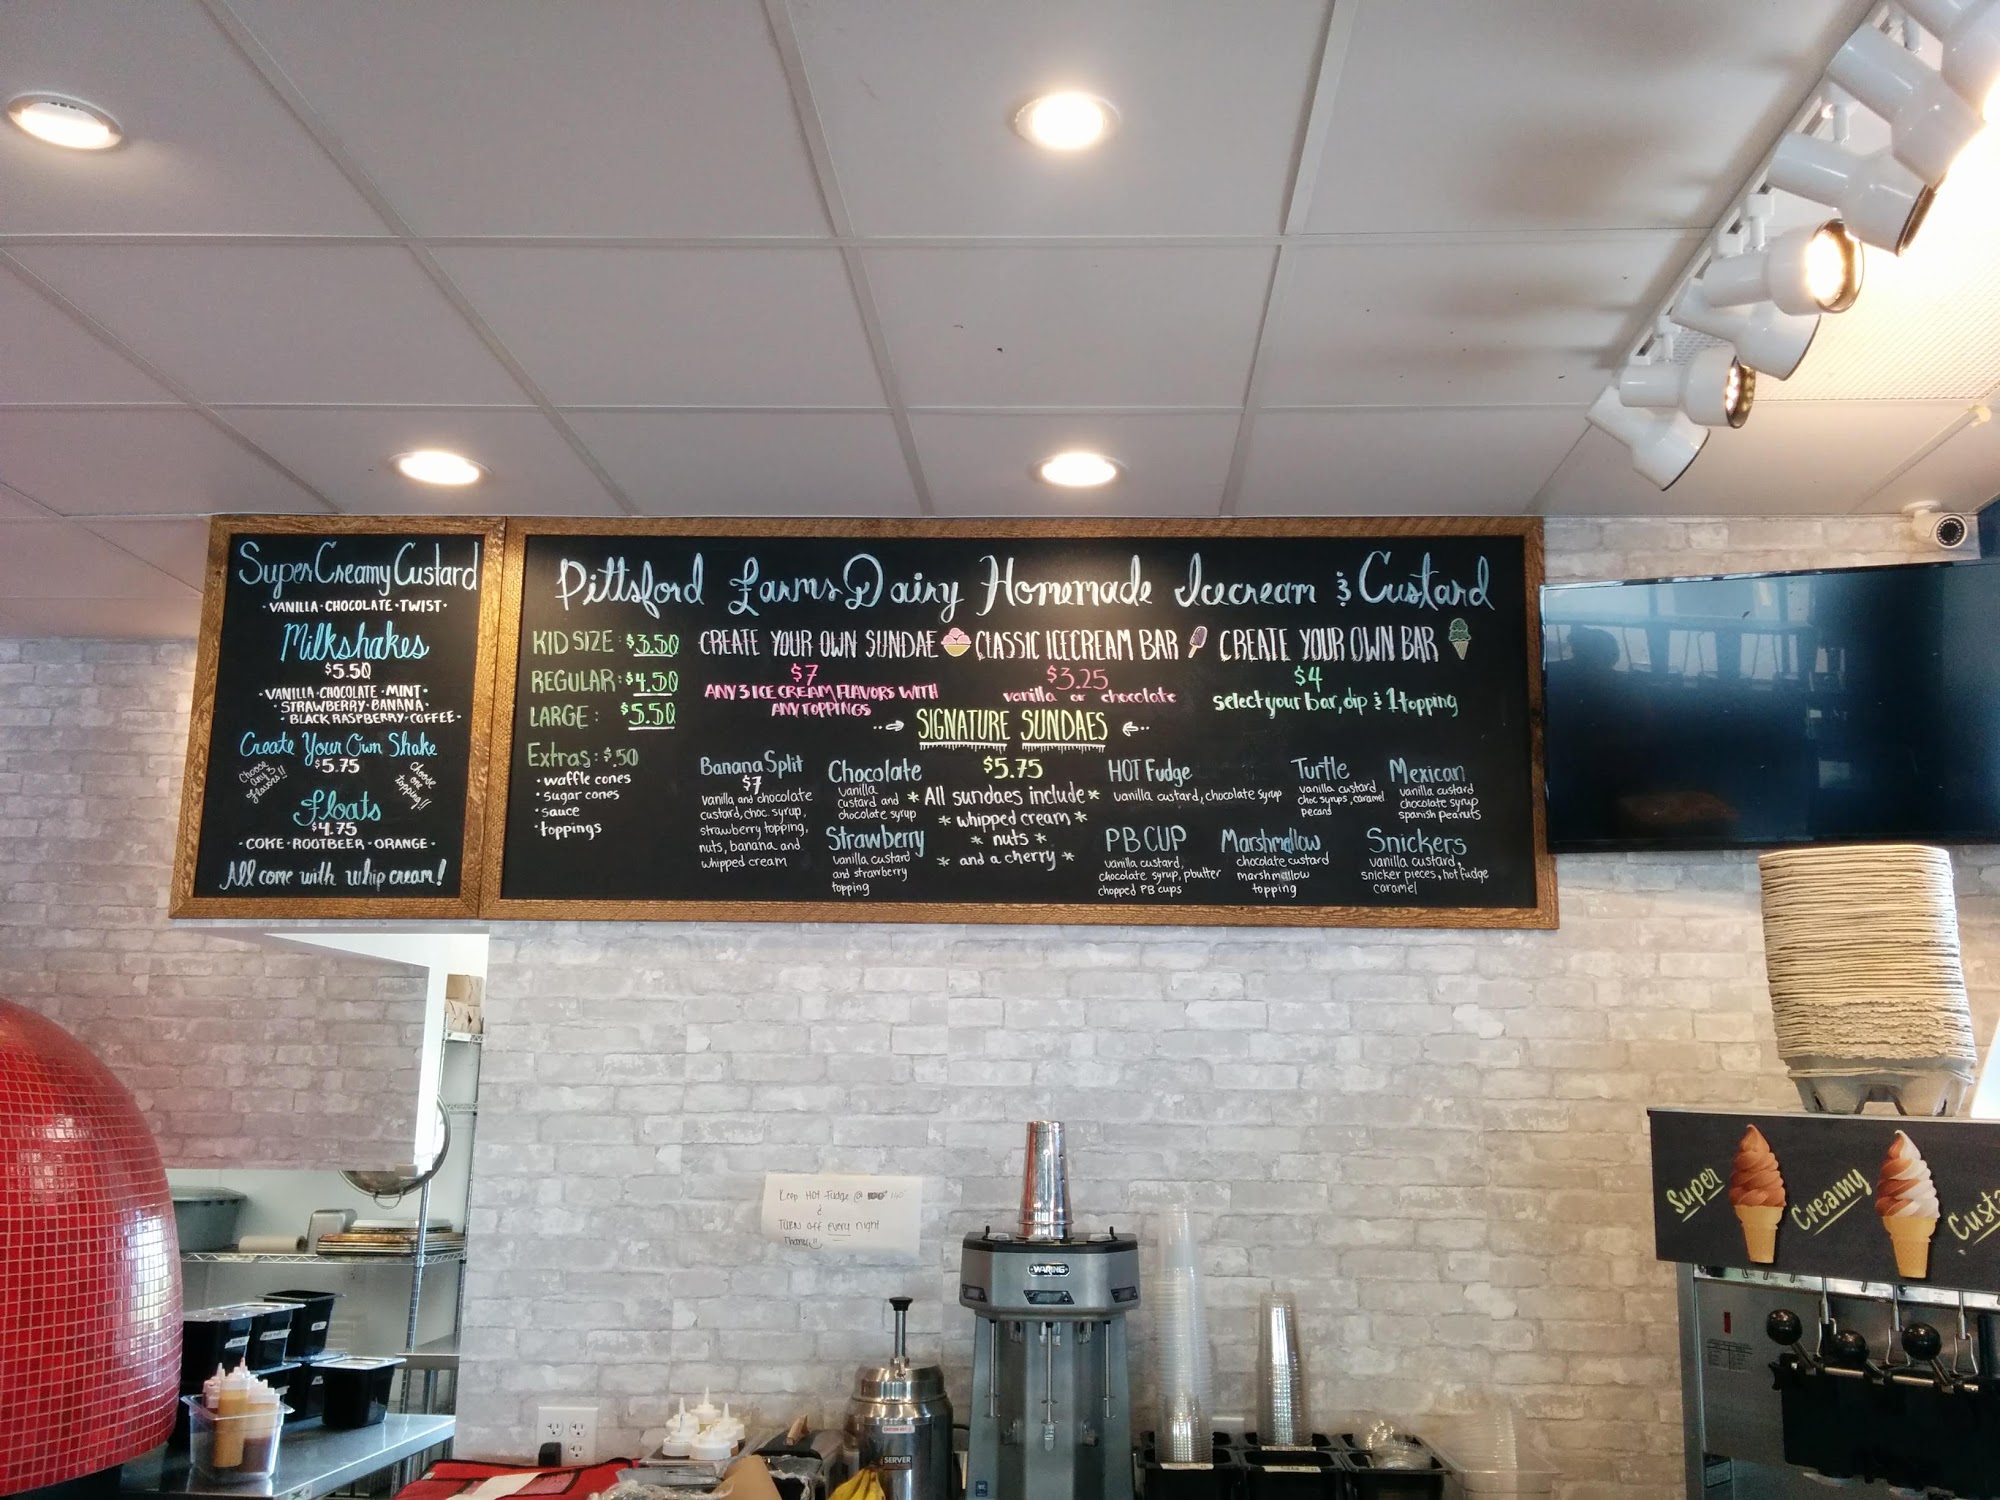 Super Creamy Custard
· VANILLA · CHOCOLATE · TWIST ·
Milkshakes
$5.50
· VANILLA · CHOCOLATE · MINT ·
· STRAWBERRY · BANANA ·
· BLACK RASPBERRY · COFFEE ·
Create Your Own Shake
$5.75
Choose
any 3
flavors!!
choose
one
topping!!
Floats
$4.75
· COKE · ROOTBEER · ORANGE ·
All come with whip cream!
Pittsford Farms Dairy Homemade Icecream & Custard
KID SIZE: $3.50
REGULAR: $4.50
LARGE: $5.50
Extras: $.50
· waffle cones
· sugar cones
· sauce
· toppings
CREATE YOUR OWN SUNDAE
$7
ANY 3 ICE CREAM FLAVORS WITH
ANY TOPPINGS
CLASSIC ICECREAM BAR
$3.25
vanilla or chocolate
CREATE YOUR OWN BAR
$4
select your bar, dip & 1 topping
SIGNATURE SUNDAES
$5.75
* All sundaes include *
* whipped cream *
* nuts *
* and a cherry *
Banana Split
$7
vanilla and chocolate
custard, choc. syrup,
strawberry topping,
nuts, banana and
whipped cream
Chocolate
vanilla
custard and
chocolate syrup
Strawberry
vanilla custard
and strawberry
topping
HOT Fudge
vanilla custard, chocolate syrup
PB CUP
vanilla custard,
chocolate syrup, pbutter
chopped PB cups
Turtle
vanilla custard
choc syrups, caramel
pecans
Marshmallow
chocolate custard
marshmallow
topping
Mexican
vanilla custard
chocolate syrup
spanish peanuts
Snickers
vanilla custard,
snicker pieces, hot fudge
caramel
Keep HOT Fudge @ 140°
&
TURN off every night
Thanks!!
WARING
SERVER
Super Creamy Custa